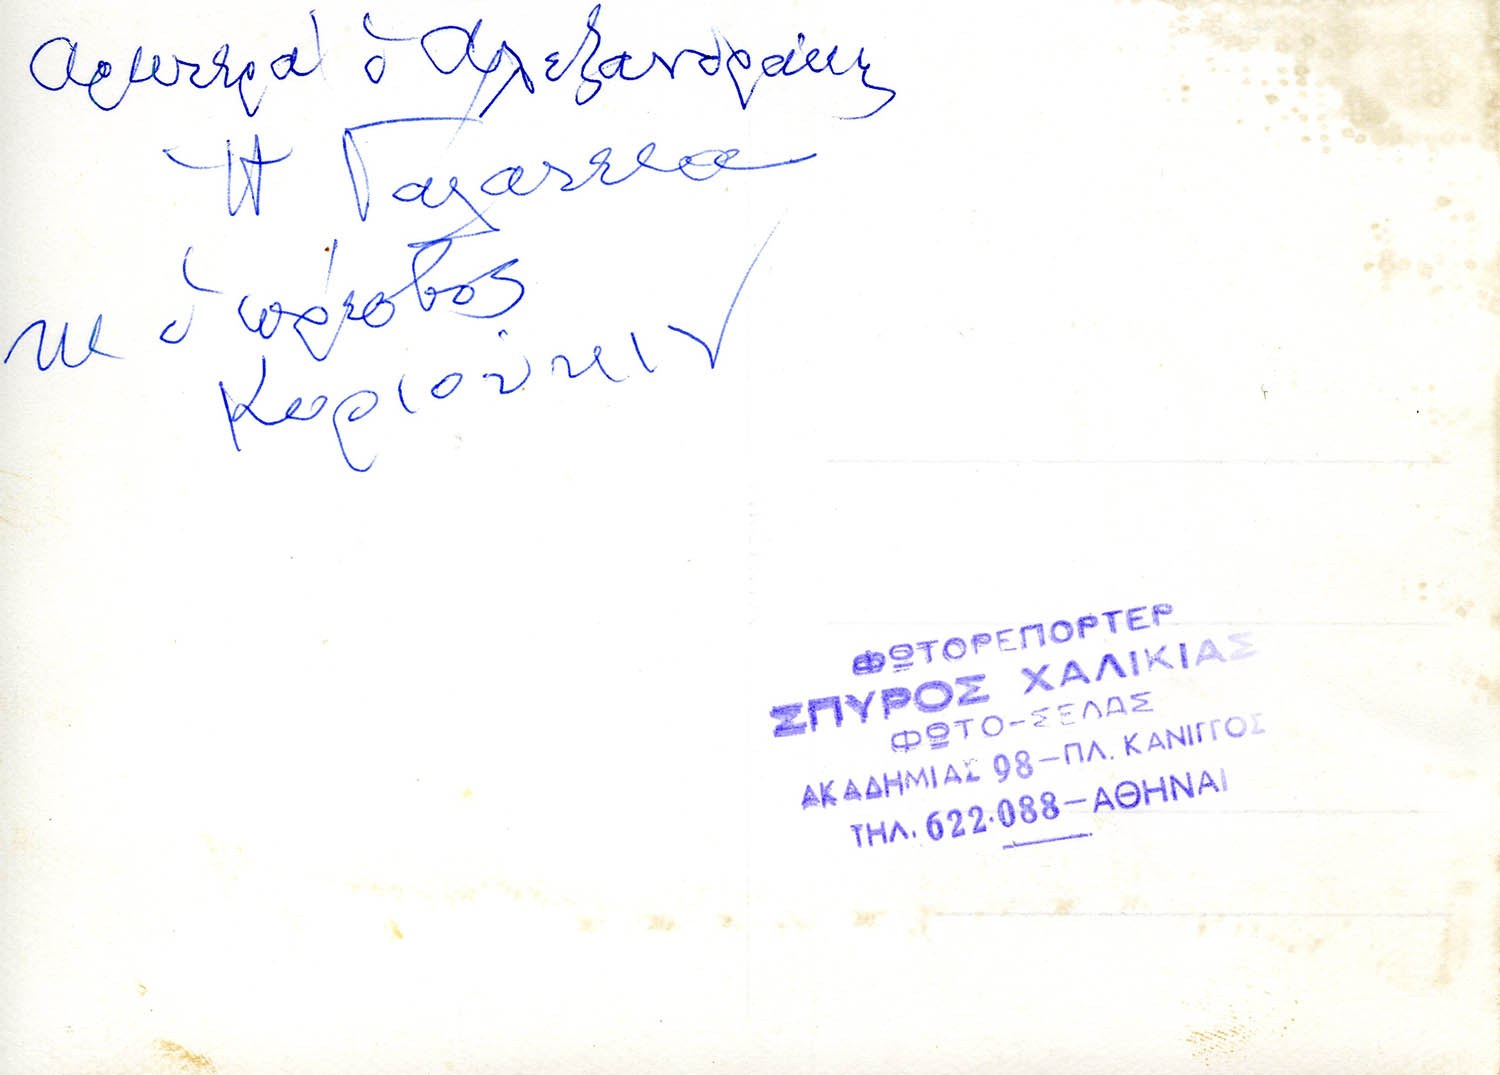 Αριστερά ὁ Αλεξανδράκης
Ἡ Γαλάτεια
κι ὁ πρέσβυς
ΦΩΤΟΡΕΠΟΡΤΕΡ
ΣΠΥΡΟΣ ΧΑΛΙΚΙΑΣ
ΦΩΤΟ-ΣΕΛΑΣ
ΑΚΑΔΗΜΙΑΣ 98-ΠΛ. ΚΑΝΙΓΓΟΣ
ΤΗΛ. 622.088-ΑΘΗΝΑΙ